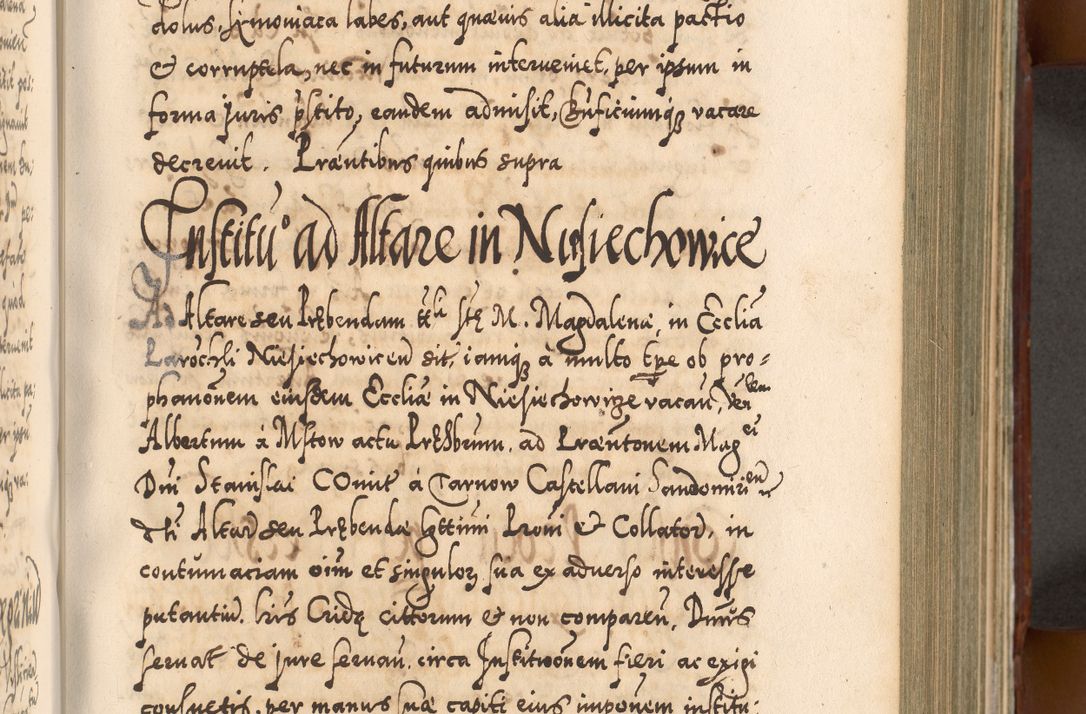 dolus, symoniaca labes, aut quævis alia illicita pactio
& corruptela, nec in futurum interveniet, per ipsum in
forma juris pstito, eandem admisit, Bnficiumq vacare
decrevit. Præntibus quibus supra
Institu° ad Altare in Niesiechowice
Ad Altare seu Præbendam ttli stæ M. Magdalenæ, in Ecclia
Parochli Niesiechowicen sit, iamq à multo tpe ob pro=
phanonem eiusdem Eccliæ in Niesiechowice vacan, Ven
Albertum à Mstow actu Prsbrum, ad Præntonem Mag ci
Dni Stanislai COmit à Tarnow Castellani Sandomirien
dti Altar seu Præbendæ lgttimi Provi & Collator, in
contumaciam oim et singulor sua ex adverso interesse
putantiu, lris Cridæ cittorum & non comparen, Dnus
servat de jure servan, circa Institutionem fieri ac exigi
consuetis, per manus suæ capiti eius imponem institu: